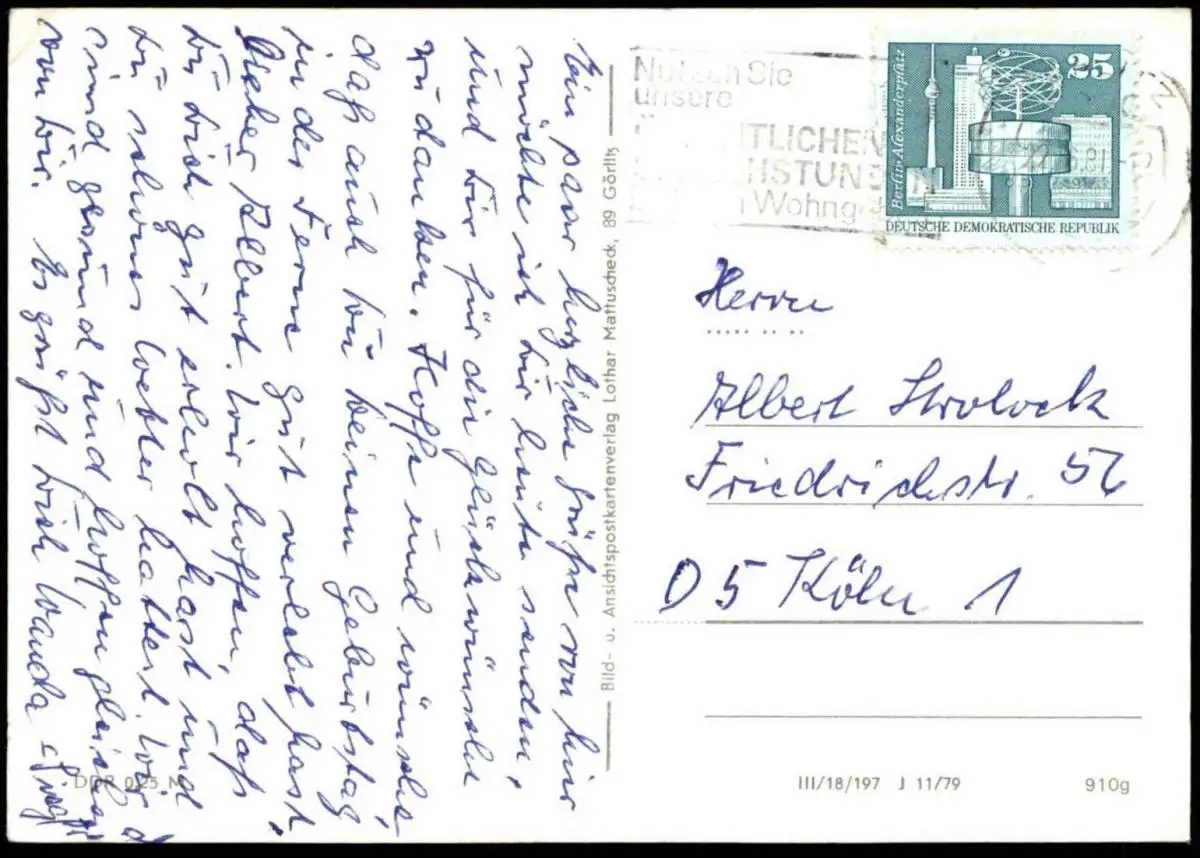 Ein paar herzliche Grüße von hier
möchte ich dir heute senden,
und dir für die Glückwünsche
zu danken. Hoffe und wünsche
daß auch du deinen Geburtstag
in der Ferne gut verlebt hast.
Lieber Albert. Wir hoffen, daß
du dich gut erholt hast und
du schönes Wetter hattest. Wir
sind gesund und hoffen gleiches
von dir. Es grüßt dich Wanda
Bild- u. Ansichtspostkartenverlag Lothar Mattuscheck, 89 Görlitz
Nutzen Sie
unsere
TLICHEN
STUN
Wohng
Berlin-Alexanderplatz
25
DEUTSCHE DEMOKRATISCHE REPUBLIK
Herrn
Albert Skrolock
Friedrichstr. 56
D 5 Köln 1
DDR 0,25 M
III/18/197 J 11/79
910g